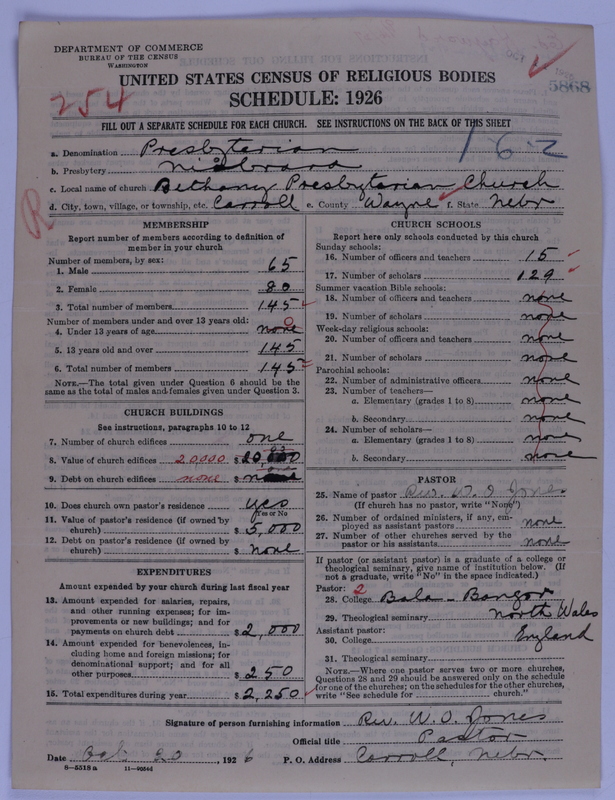 DEPARTMENT OF COMMERCE
BUREAU OF THE CENSUS
WASHINGTON
UNITED STATES CENSUS OF RELIGIOUS BODIES
SCHEDULE: 1926
254
5868
FILL OUT A SEPARATE SCHEDULE FOR EACH CHURCH. SEE INSTRUCTIONS ON THE BACK OF THIS SHEET
162
a. Denomination Presbyterian
b. Presbytery Niobrara
c. Local name of church Bethany Presbyterian Church
d. City, town, village, or township, etc. Carroll e. County Wayne f. State Nebr
R
MEMBERSHIP
Report number of members according to definition of member in your church
Number of members, by sex:
1. Male 65
2. Female 80
3. Total number of members 145
Number of members under and over 13 years old:
4. Under 13 years of age none 0
5. 13 years old and over 145
6. Total number of members 145
NOTE.—The total given under Question 6 should be the same as the total of males and females given under Question 3.
CHURCH BUILDINGS
See instructions, paragraphs 10 to 12
7. Number of church edifices one
8. Value of church edifices 20000 $ 20,000
9. Debt on church edifices none $ none
10. Does church own pastor's residence yes
Yes or No
11. Value of pastor's residence (if owned by church) $ 5,000
12. Debt on pastor's residence (if owned by church) $ none
EXPENDITURES
Amount expended by your church during last fiscal year
13. Amount expended for salaries, repairs, and other running expenses; for improvements or new buildings; and for payments on church debt $ 2,000
14. Amount expended for benevolences, including home and foreign missions; for denominational support; and for all other purposes $ 250
15. Total expenditures during year $ 2,250
CHURCH SCHOOLS
Report here only schools conducted by this church
Sunday schools:
16. Number of officers and teachers 15
17. Number of scholars 129
Summer vacation Bible schools:
18. Number of officers and teachers none
19. Number of scholars none
Week-day religious schools:
20. Number of officers and teachers none
21. Number of scholars none
Parochial schools:
22. Number of administrative officers none
23. Number of teachers—
a. Elementary (grades 1 to 8) none
b. Secondary none
24. Number of scholars—
a. Elementary (grades 1 to 8) none
b. Secondary none
PASTOR
25. Name of pastor Rev. W. O Jones
(If church has no pastor, write "None")
26. Number of ordained ministers, if any, employed as assistant pastors none
27. Number of other churches served by the pastor or his assistants none
If pastor (or assistant pastor) is a graduate of a college or theological seminary, give name of institution below. (If not a graduate, write "No" in the space indicated.)
Pastor: 2
28. College Bala-Bangor
29. Theological seminary North Wales
Assistant pastor: England
30. College
31. Theological seminary
NOTE.—Where one pastor serves two or more churches, Questions 28 and 29 should be answered only on the schedule for one of the churches; on the schedules for the other churches, write "See schedule for ........ church."
Signature of person furnishing information Rev. W. O. Jones
Official title Pastor
Date 20, 1926 P. O. Address Carroll, Nebr.
8—5518 a 11—9054d